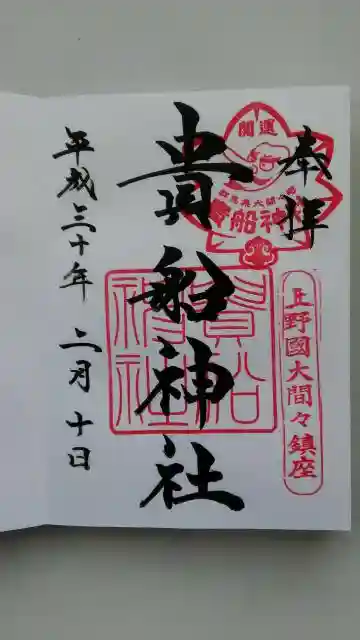 奉拝
開運
群馬県大間々町
貴船神社
上野國大間々鎮座
貴船神社
貴船神社
平成三十年 二月 十日